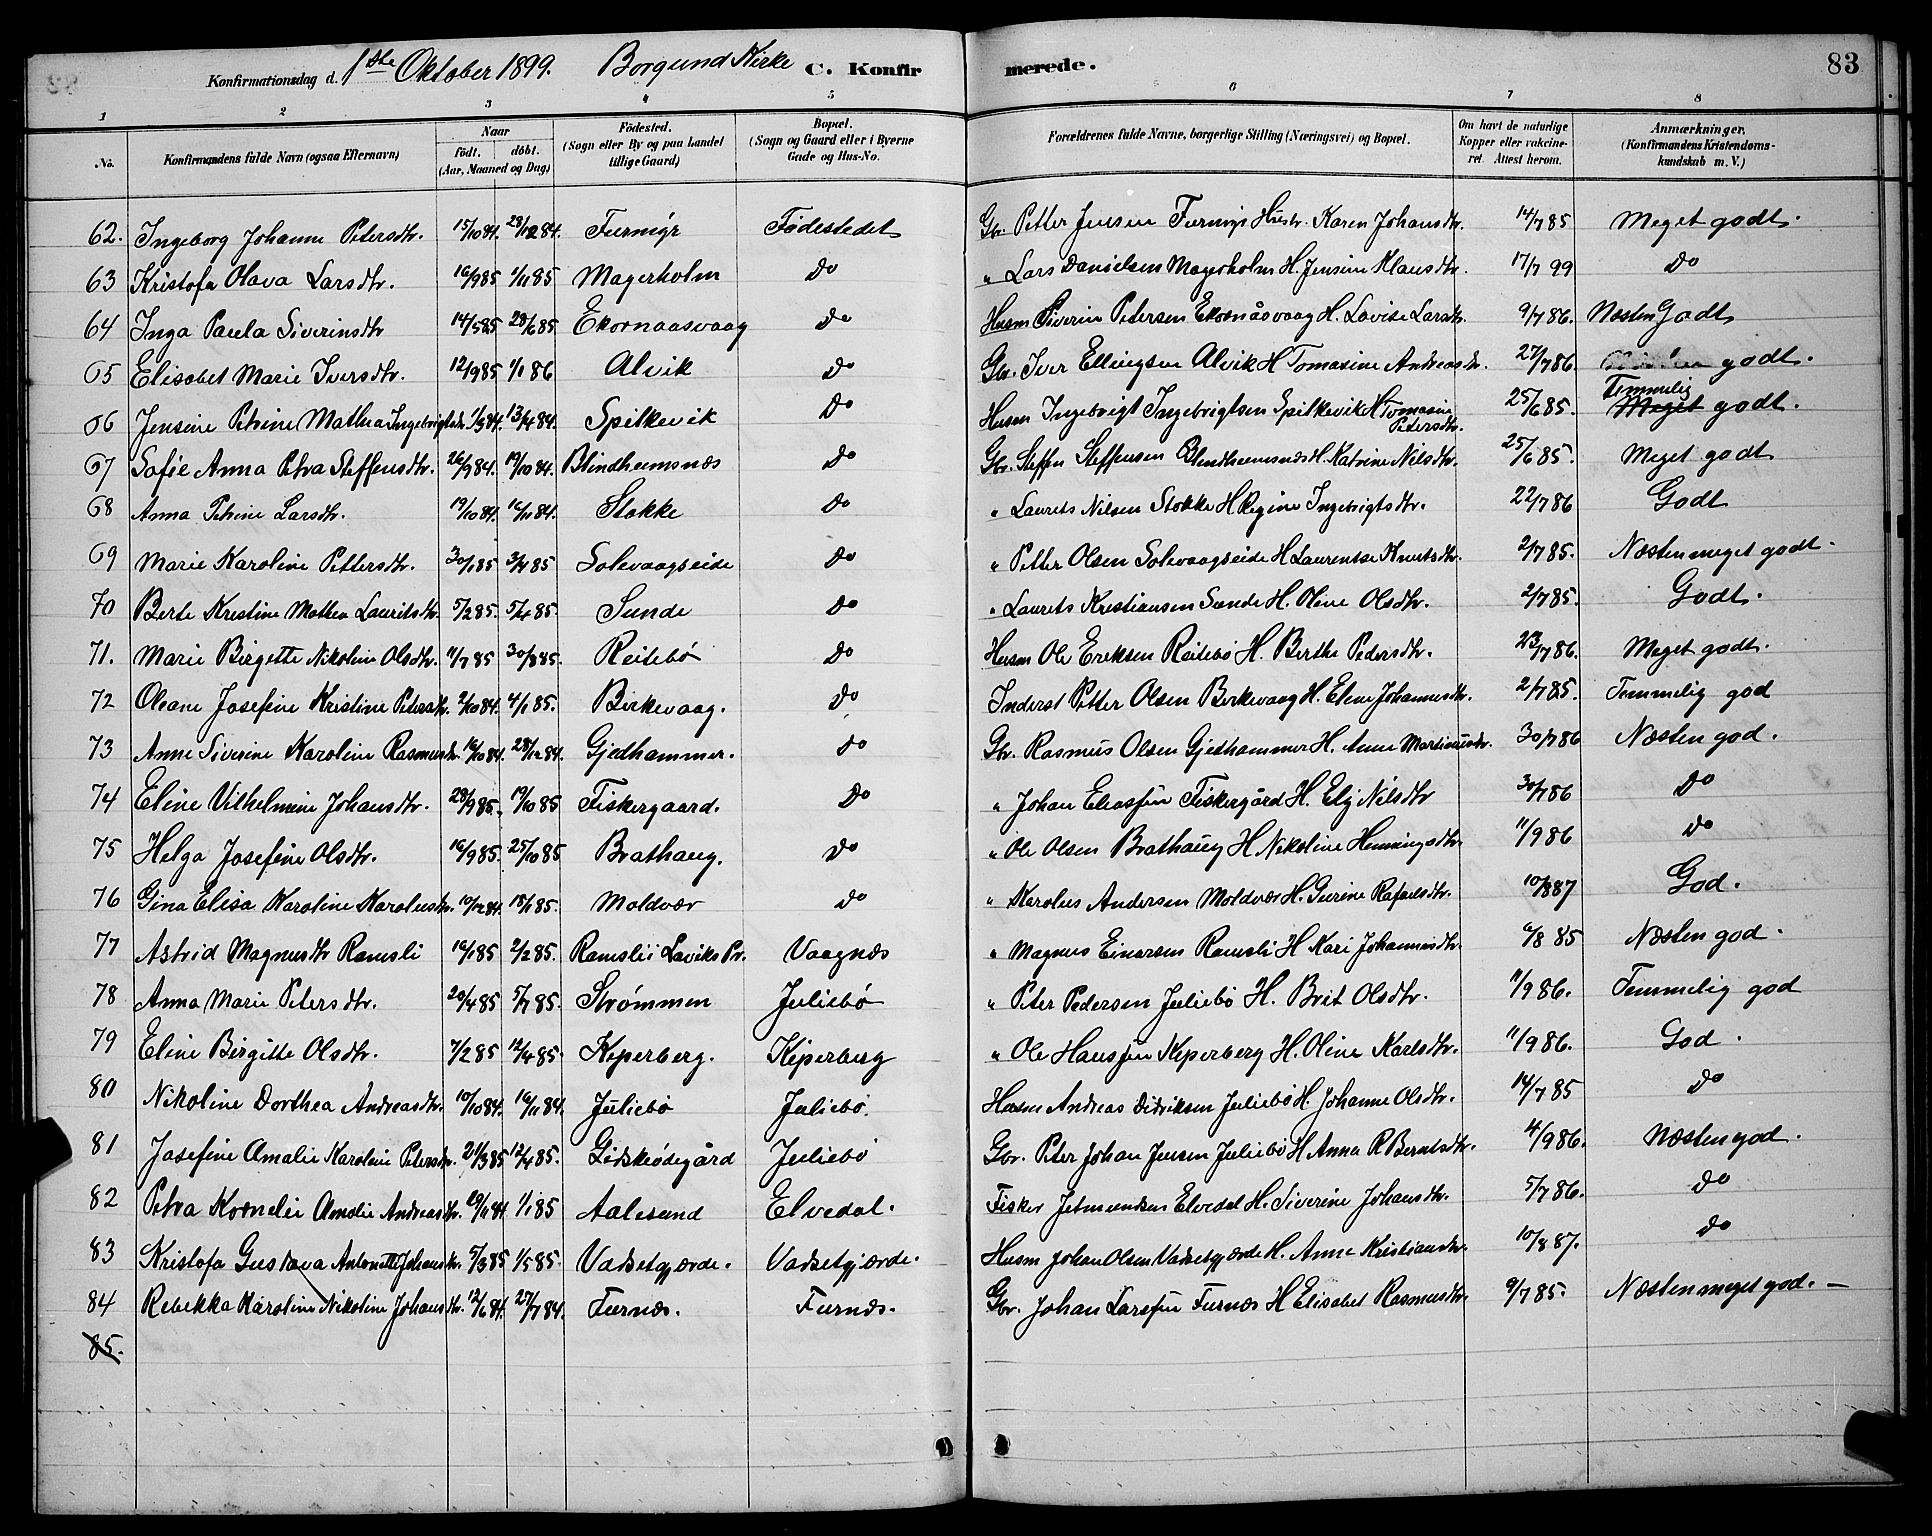 Konfirmationsdag d. 1ste Oktober 1899. Borgund Kirke C. Konfirmerede. 83
1 2 3 4 5 6 7 8
No. Konfirmandens fulde Navn (ogsaa Efternavn) Naar födt. döbt. (Aar, Maaned og Dag) Födested. (Sogn eller By og paa Landet tillige Gaard) Bopæl. (Sogn og Gaard eller i Byerne Gade og Hus-No. Forældrenes fulde Navne, borgerlige Stilling (Næringsvei) og Bopæl. Om havt de naturlige Kopper eller vakcineret. Attest herom. Anmærkninger, (Konfirmandens Kristendomskundskab m. V.)
62. Ingeborg Johanne Petersdtr. 15/10 84. 28/12 84. Furmyr Fødestedet Gbr. Petter Jensen Furmyr Hustr. Karen Johansdtr. 14/7 85 Meget godt.
63 Kristofa Olava Larsdtr. 16/9 85 1/11 85 Magerholm Do " Lars Danielsen Magerholm H. Jensine Klausdtr. 17/7 99 Do
64 Inga Paula Siverinsdtr 14/5 85 28/6 85 Ekornaasvaag Do Husm Siverin Petersen Ekornåsvaag H. Lovise Larsdtr. 9/7 86. Næsten Godt
65 Elisabet Marie Iversdtr. 12/9 85 1/1 86 Alvik Do Gbr. Iver Ellingsen Alvik H Tomasine Andreasdtr. 27/7 86. godt.
66 Jensine Petrine Mathea Ingebrigtsdtr. 1/3 84. 13/4 84. Spitkevik Do Husm Ingebrigt Ingebrigtsen Spitkevik H Tomasine Petersdtr. 25/6 85. Temmelig Meget godt.
67 Sofie Anna Petra Steffensdtr. 26/9 84. 19/10 84. Blindheimsnæs Do Gbr. Steffen Steffensen Blindheimsnæs H. Katrine Nilsdtr. 25/6 85. Meget godt
68 Anna Petrine Larsdtr. 19/10 84. 16/11 84. Stokke Do " Laurets Nilsen Stokke H Regine Ingebrigtsdtr. 22/7 86 Godt
69 Marie Karoline Pettersdtr. 30/1 85 3/4 85 Solevaagseide Do " Petter Olsen Solevaagseide H Laurentse Knutsdtr. 2/7 85. Næsten meget godt.
70 Berte Kristine Mathea Lauritsdtr. 5/2 85. 5/4 85 Sunde Do " Laurets Kristiansen Sunde H. Oline Olsdtr. 2/7 85. Godt.
71. Marie Birgette Nikoline Olsdtr. 11/7 85 30/8 85. Reitebø Do Husm Ole Ereksen Reitebø H. Berthe Pedersdtr. 23/7 86. Meget godt.
72 Oleane Josefine Kristine Petersdtr. 2/10 84. 4/1 85. Birkevaag. Do Inderst Petter Olsen Berkevaag H. Eline Johannesdtr. 2/7 85. Temmelig god
73 Anne Siverine Karoline Rasmusdtr. 16/10 84. 28/12 84. Gjedhammer. Do Gbr. Rasmus Olsen Gjedhammer H. Anne Martinusdtr. 30/7 86 Næsten god.
74 Eline Vilhelmine Johansdtr. 28/9 85. 19/10 85 Fiskergaard. Do " Johan Eliassen Fiskergård H. Elij Nilsdtr 30/7 86 Do
75 Helga Josefine Olsdtr. 16/9 85. 25/10 85 Brathaug. Do " Ole Olsen Brathaug H Nikoline Henningsdtr. 11/9 86 Do
76 Gina Elisa Karoline Karolusdtr. 10/12 84. 18/1 85. Moldvær Do " Karolus Andersen Moldvær H. Gurine Rafaelsdtr. 10/8 87 God.
77 Astrid Magnusdtr Ramsli 16/1 85 2/2 85. Ramsli i Laviks Pr. Vaagnæs " Magnus Einersen Ramsli H Kari Johannesdtr. 6/8 85 Næsten god.
78 Anna Marie Petersdtr. 20/4 85 5/7 85. Strømmen Juliebø " Peter Pedersen Juliebø H. Brit Olsdtr. 11/9 86. Temmelig god
79 Eline Birgitte Olsdtr. 7/2 85 12/4 85. Kiperberg. Kiperberg " Ole Hanssen Kiperberg H. Oline Karlsdtr. 11/9 86. God.
80 Nikoline Dorthea Andreasdtr. 10/10 84. 16/11 84. Juliebø Juliebø. Husm Andreas Didriksen Juliebø H. Johanne Olsdtr. 14/7 85 Do
81 Josefine Amalie Karoline Petersdtr. 21/3 85 12/4 85. Gidskødegård Juliebø Gbr. Peter Johan Jensen Juliebø H Anna R Berntsdtr. 4/9 86. Næsten god.
82 Petra Kornelie Amalie Andreasdtr. 19/11 84 1/1 85 Aalesund Elvedal. Fisker Jetmundsen Elvedal H. Siverine Johansdtr. 5/7 86. Do
83 Kristofa Gustava Antonette Johansdtr. 5/3 85 1/5 85. Vadsetgjærde. Vadsetgjærde. Husm Johan Olsen Vadsetgjærde H. Anne Kristiansdtr. 10/8 87. Do
84 Rebekka Karoline Nikoline Johansdtr. 12/6 84. 27/7 84. Furnæs. Furnæs. Gbr. Johan Larssen Furnæs H Elisabet Rasmusdtr. 9/7 85. Næsten meget god. —
85.